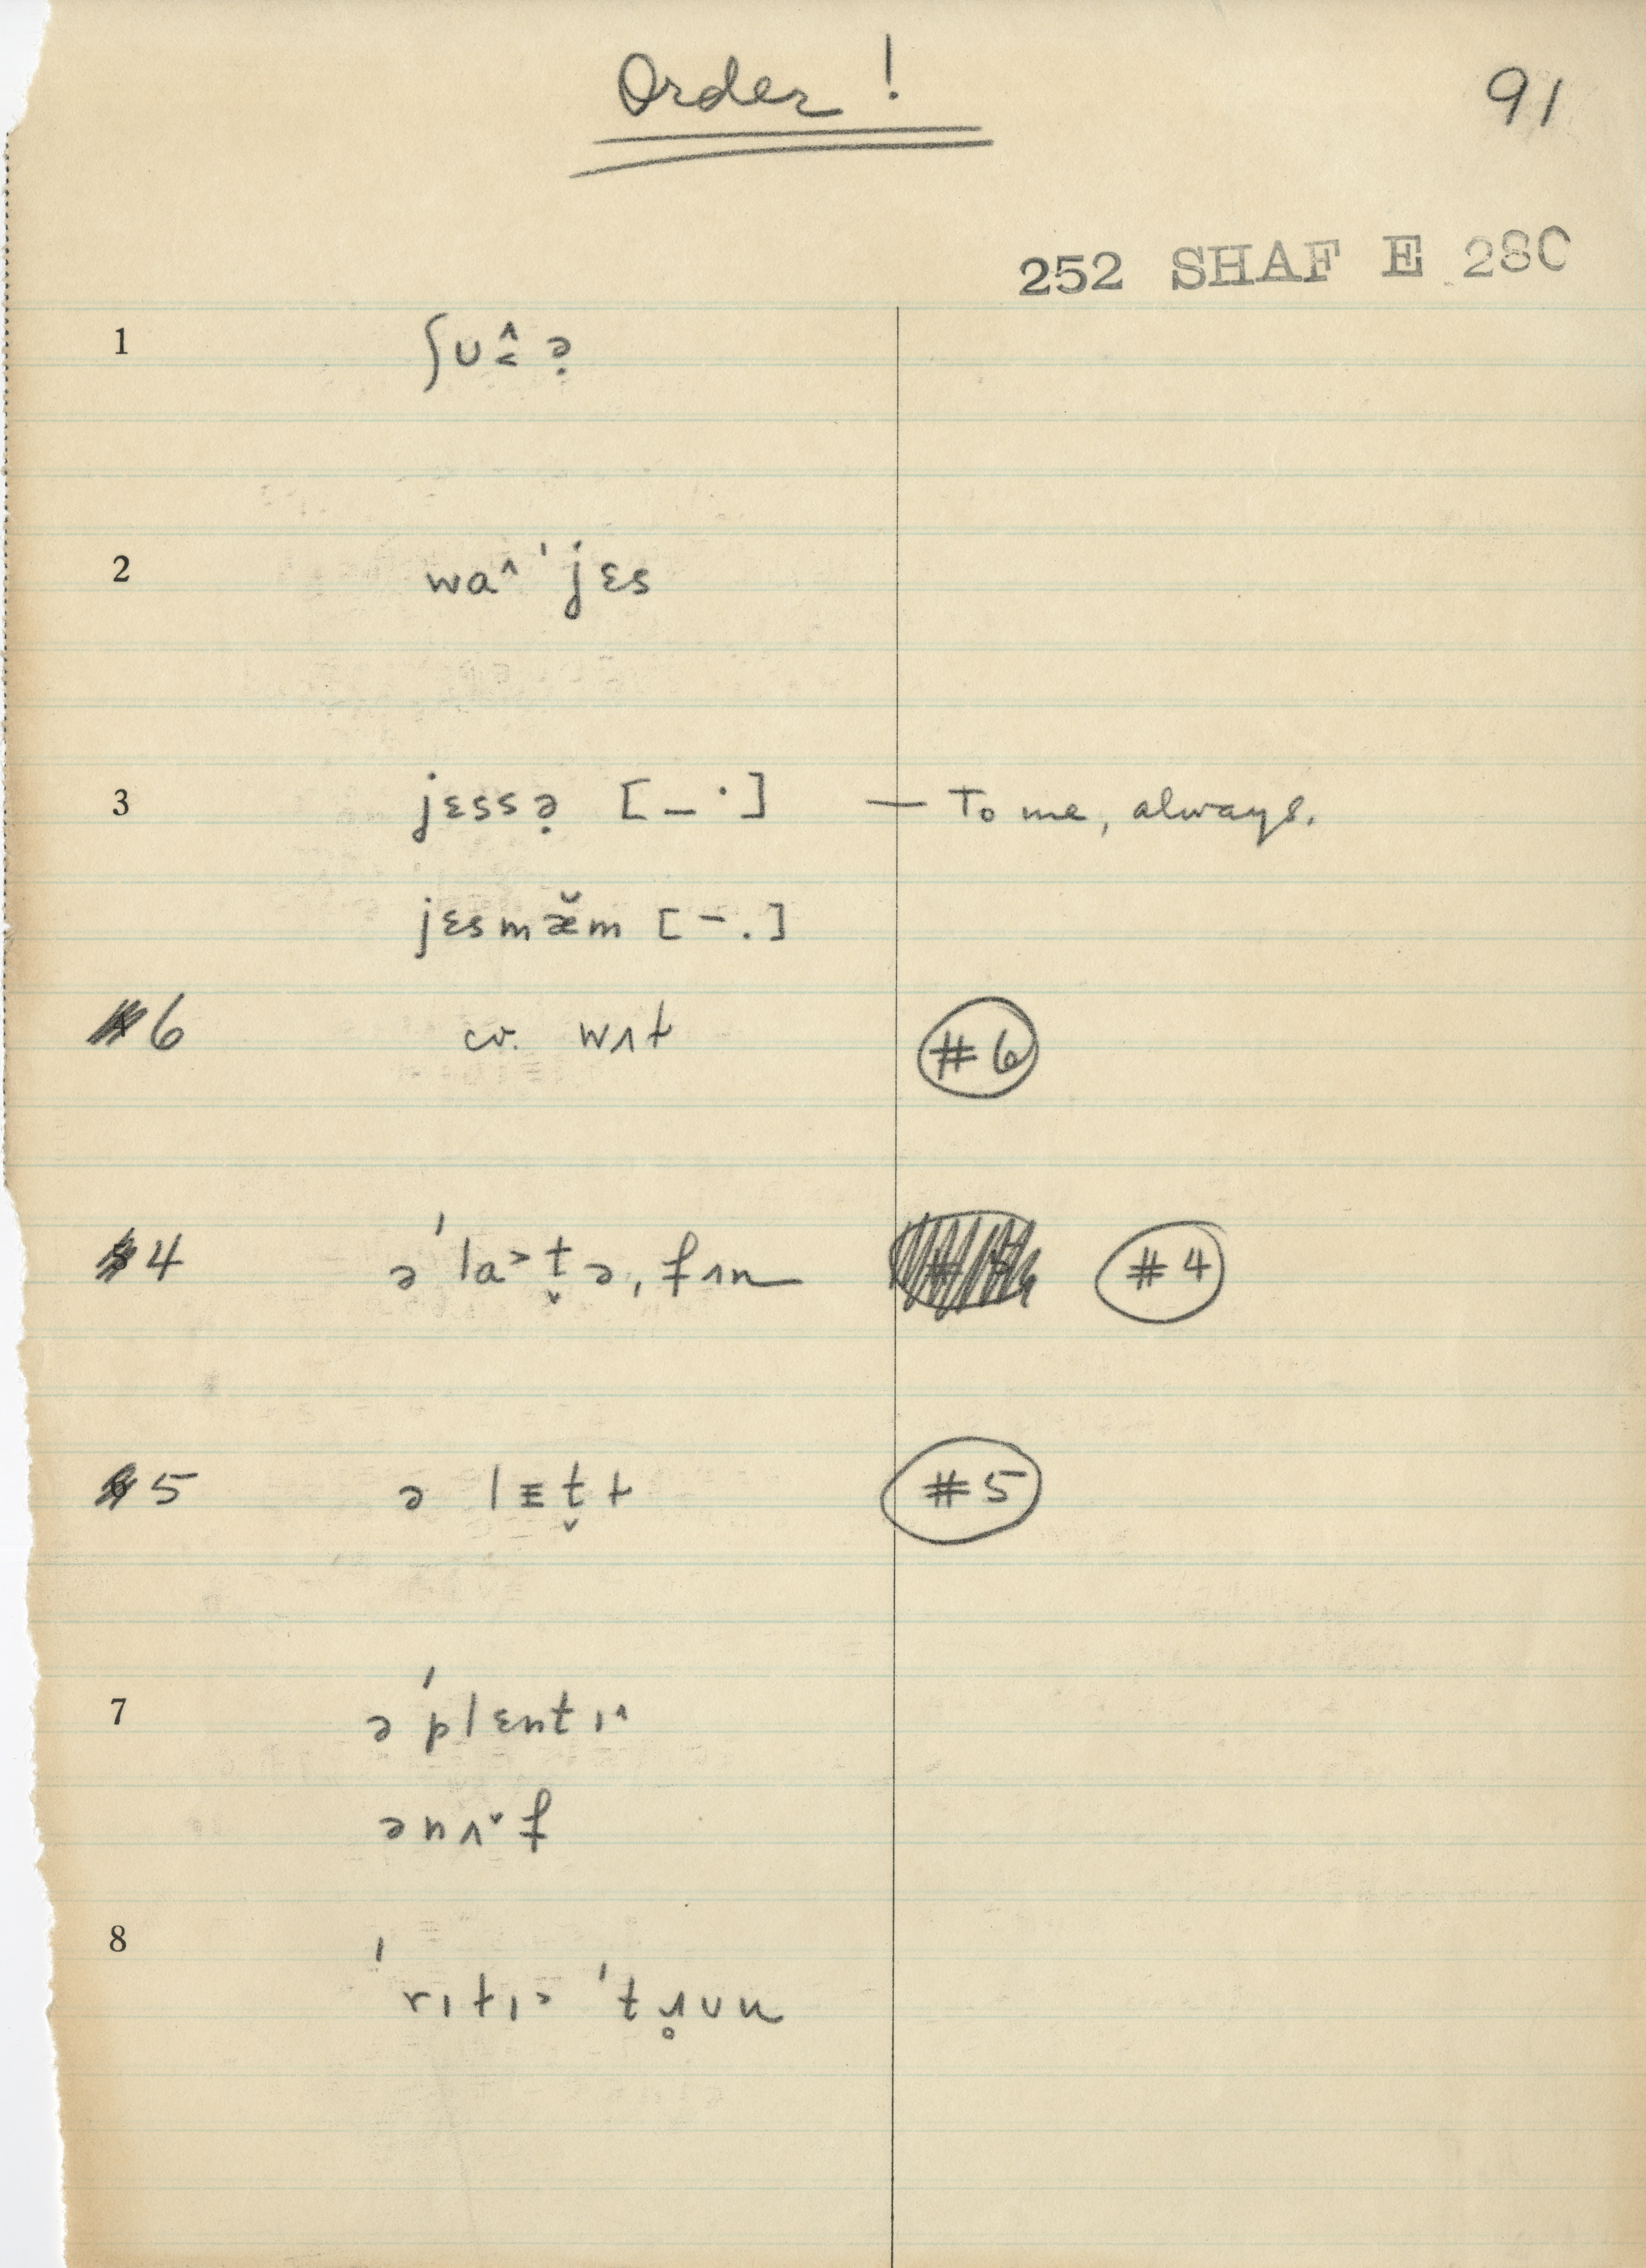 Order !
91
252 SHAF E 280
1 ʃʊ̂˂ ə̣
2 wa^ ˈjɛs
3 jɛssə̣ [_ ˙] — To me, always.
jɛsmæ̆m [¯ .]
#6 cv. wʌt #6
#4 ə ˈla˃t̬ə, fʌn #4
#5 ə lɛt̬t #5
7 ə ˈplɛntɪ^
ənʌ˅f
8 ˈrɪtɪ˃ ˈtɹ̥ʊn